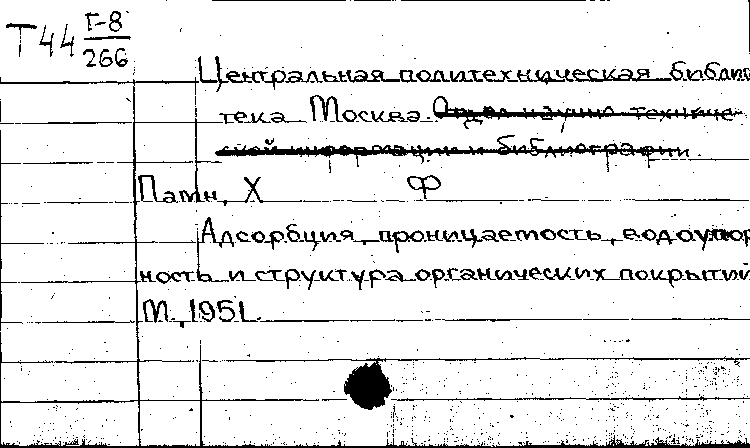 Т44 Г-8
266
Центральная политехническая библио
тека Москва. Отдел научно техниче-
ской информации и библиографии.
Патн, Х Ф
Адсорбция, проницаемость, водоупор
ность и структура органических покрытий
М., 1951.